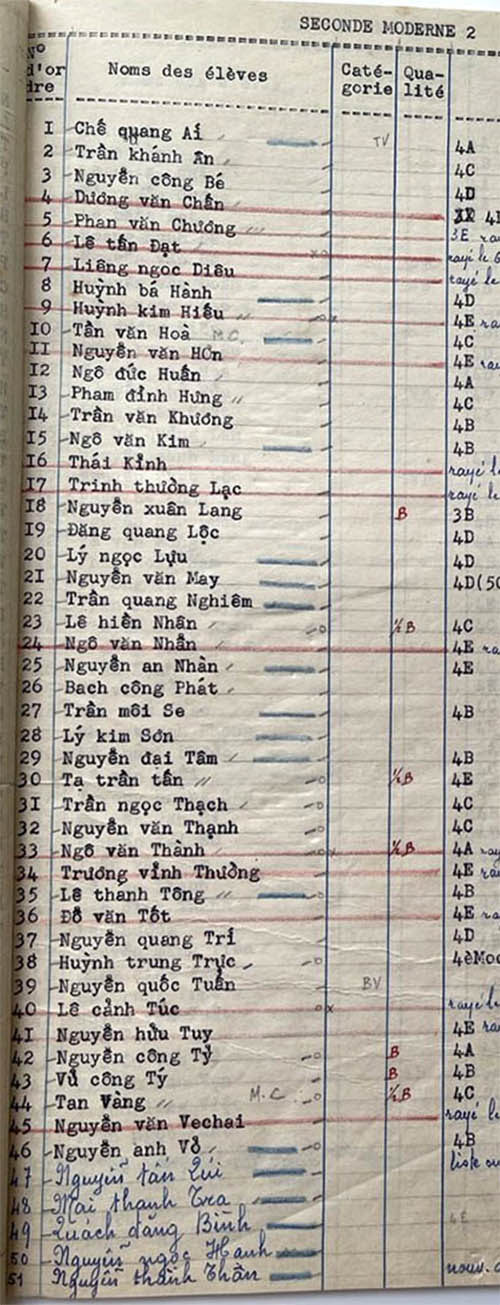 SECONDE MODERNE 2
N° d'or dre Noms des élèves Caté- gorie Qua- lité
I Chế quang Ái TV 4A
2 Trần khánh Ân 4C
3 Nguyễn công Bé 4D
4 Dương văn Chẩn
5 Phan văn Chương 3E
6 Lê tấn Đạt rayé le
7 Liêng ngọc Diêu rayé le
8 Huỳnh bá Hành 4D
9 Huỳnh kim Hiếu 4E
IO Tần văn Hoà M.C. 4C
II Nguyễn văn HƠn 4E
I2 Ngô đức Huấn 4A
I3 Phạm đỉnh Hưng 4C
I4 Trần văn Khương 4B
I5 Ngô văn Kim 4B
I6 Thái Kỉnh rayé
I7 Trinh thường Lạc rayé le
I8 Nguyễn xuân Lang B 3B
I9 Đăng quang Lộc 4D
20 Lý ngọc Lựu 4D
2I Nguyễn văn May 4D(50
22 Trần quang Nghiêm
23 Lê hiền Nhân ½B 4C
24 Ngô văn Nhẫn 4E
25 Nguyễn an Nhàn 4E
26 Bach công Phát
27 Trần môi Se 4B
28 Lý kim Sơn
29 Nguyễn đại Tâm 4B
30 Tạ trần tấn ½B 4E
3I Trần ngọc Thạch 4C
32 Nguyễn văn Thạnh 4C
33 Ngô văn Thành ½B 4A
34 Trương vỉnh Thường 4E
35 Lê thanh Tông 4B
36 Đỗ văn Tốt 4E
37 Nguyễn quang Trí 4D
38 Huỳnh trung Trực 4èMod
39 Nguyễn quốc Tuấn BV
40 Lê cảnh Túc rayé le
4I Nguyễn hửu Tuy 4E
42 Nguyễn công Tỷ B 4A
43 Vủ công Tý B 4B
44 Tan Vàng M.C. ½B 4C
45 Nguyễn văn Vechai rayé le
46 Nguyễn anh Vỏ 4B
47 Nguyễn tấn Qúi liste
48 Mai thanh Tra
49 Quách đăng Bình 4E
50 Nguyễn ngọc Hanh
51 Nguyễn thành Thân nouv.